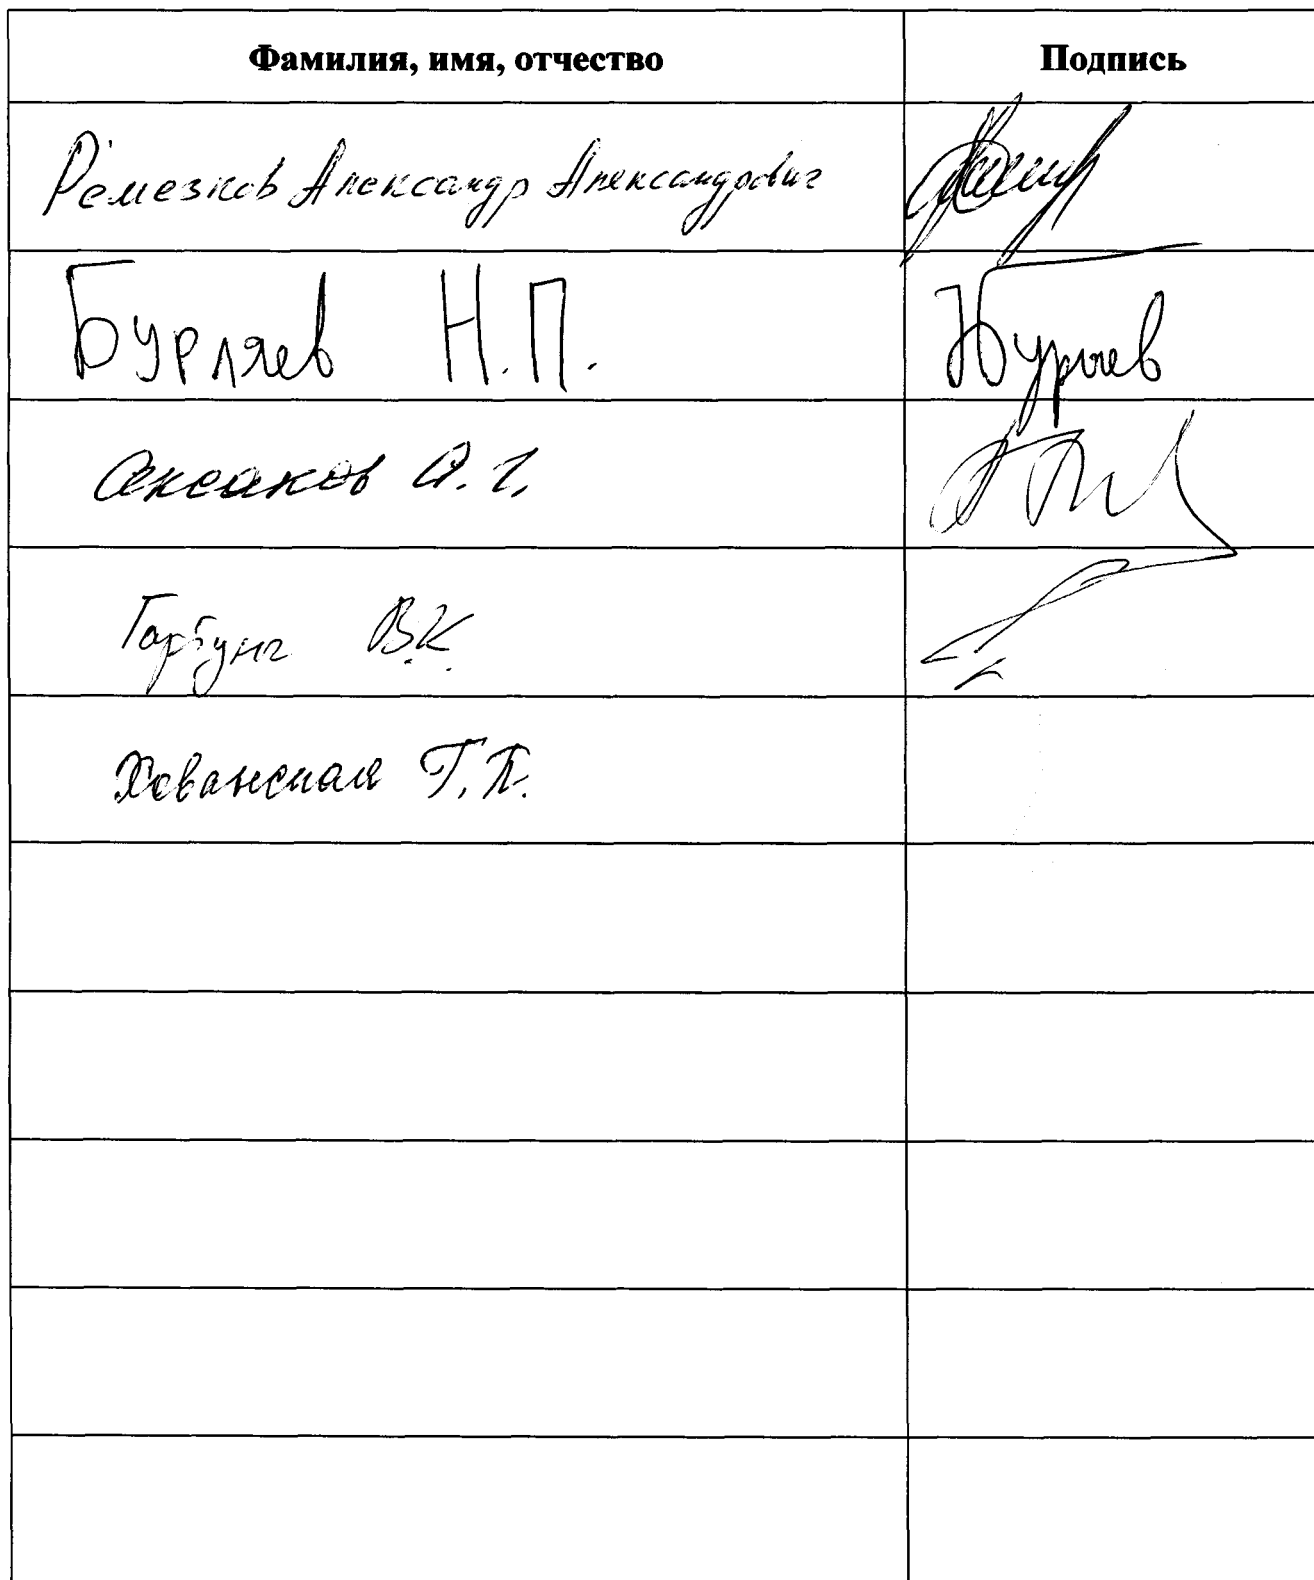 Фамилия, имя, отчество Подпись
Ремезков Александр Александрович
Бурляев Н.П. Бурляев
Аксаков А.Г.
Гартунг В.К.
Хованская Г.П.